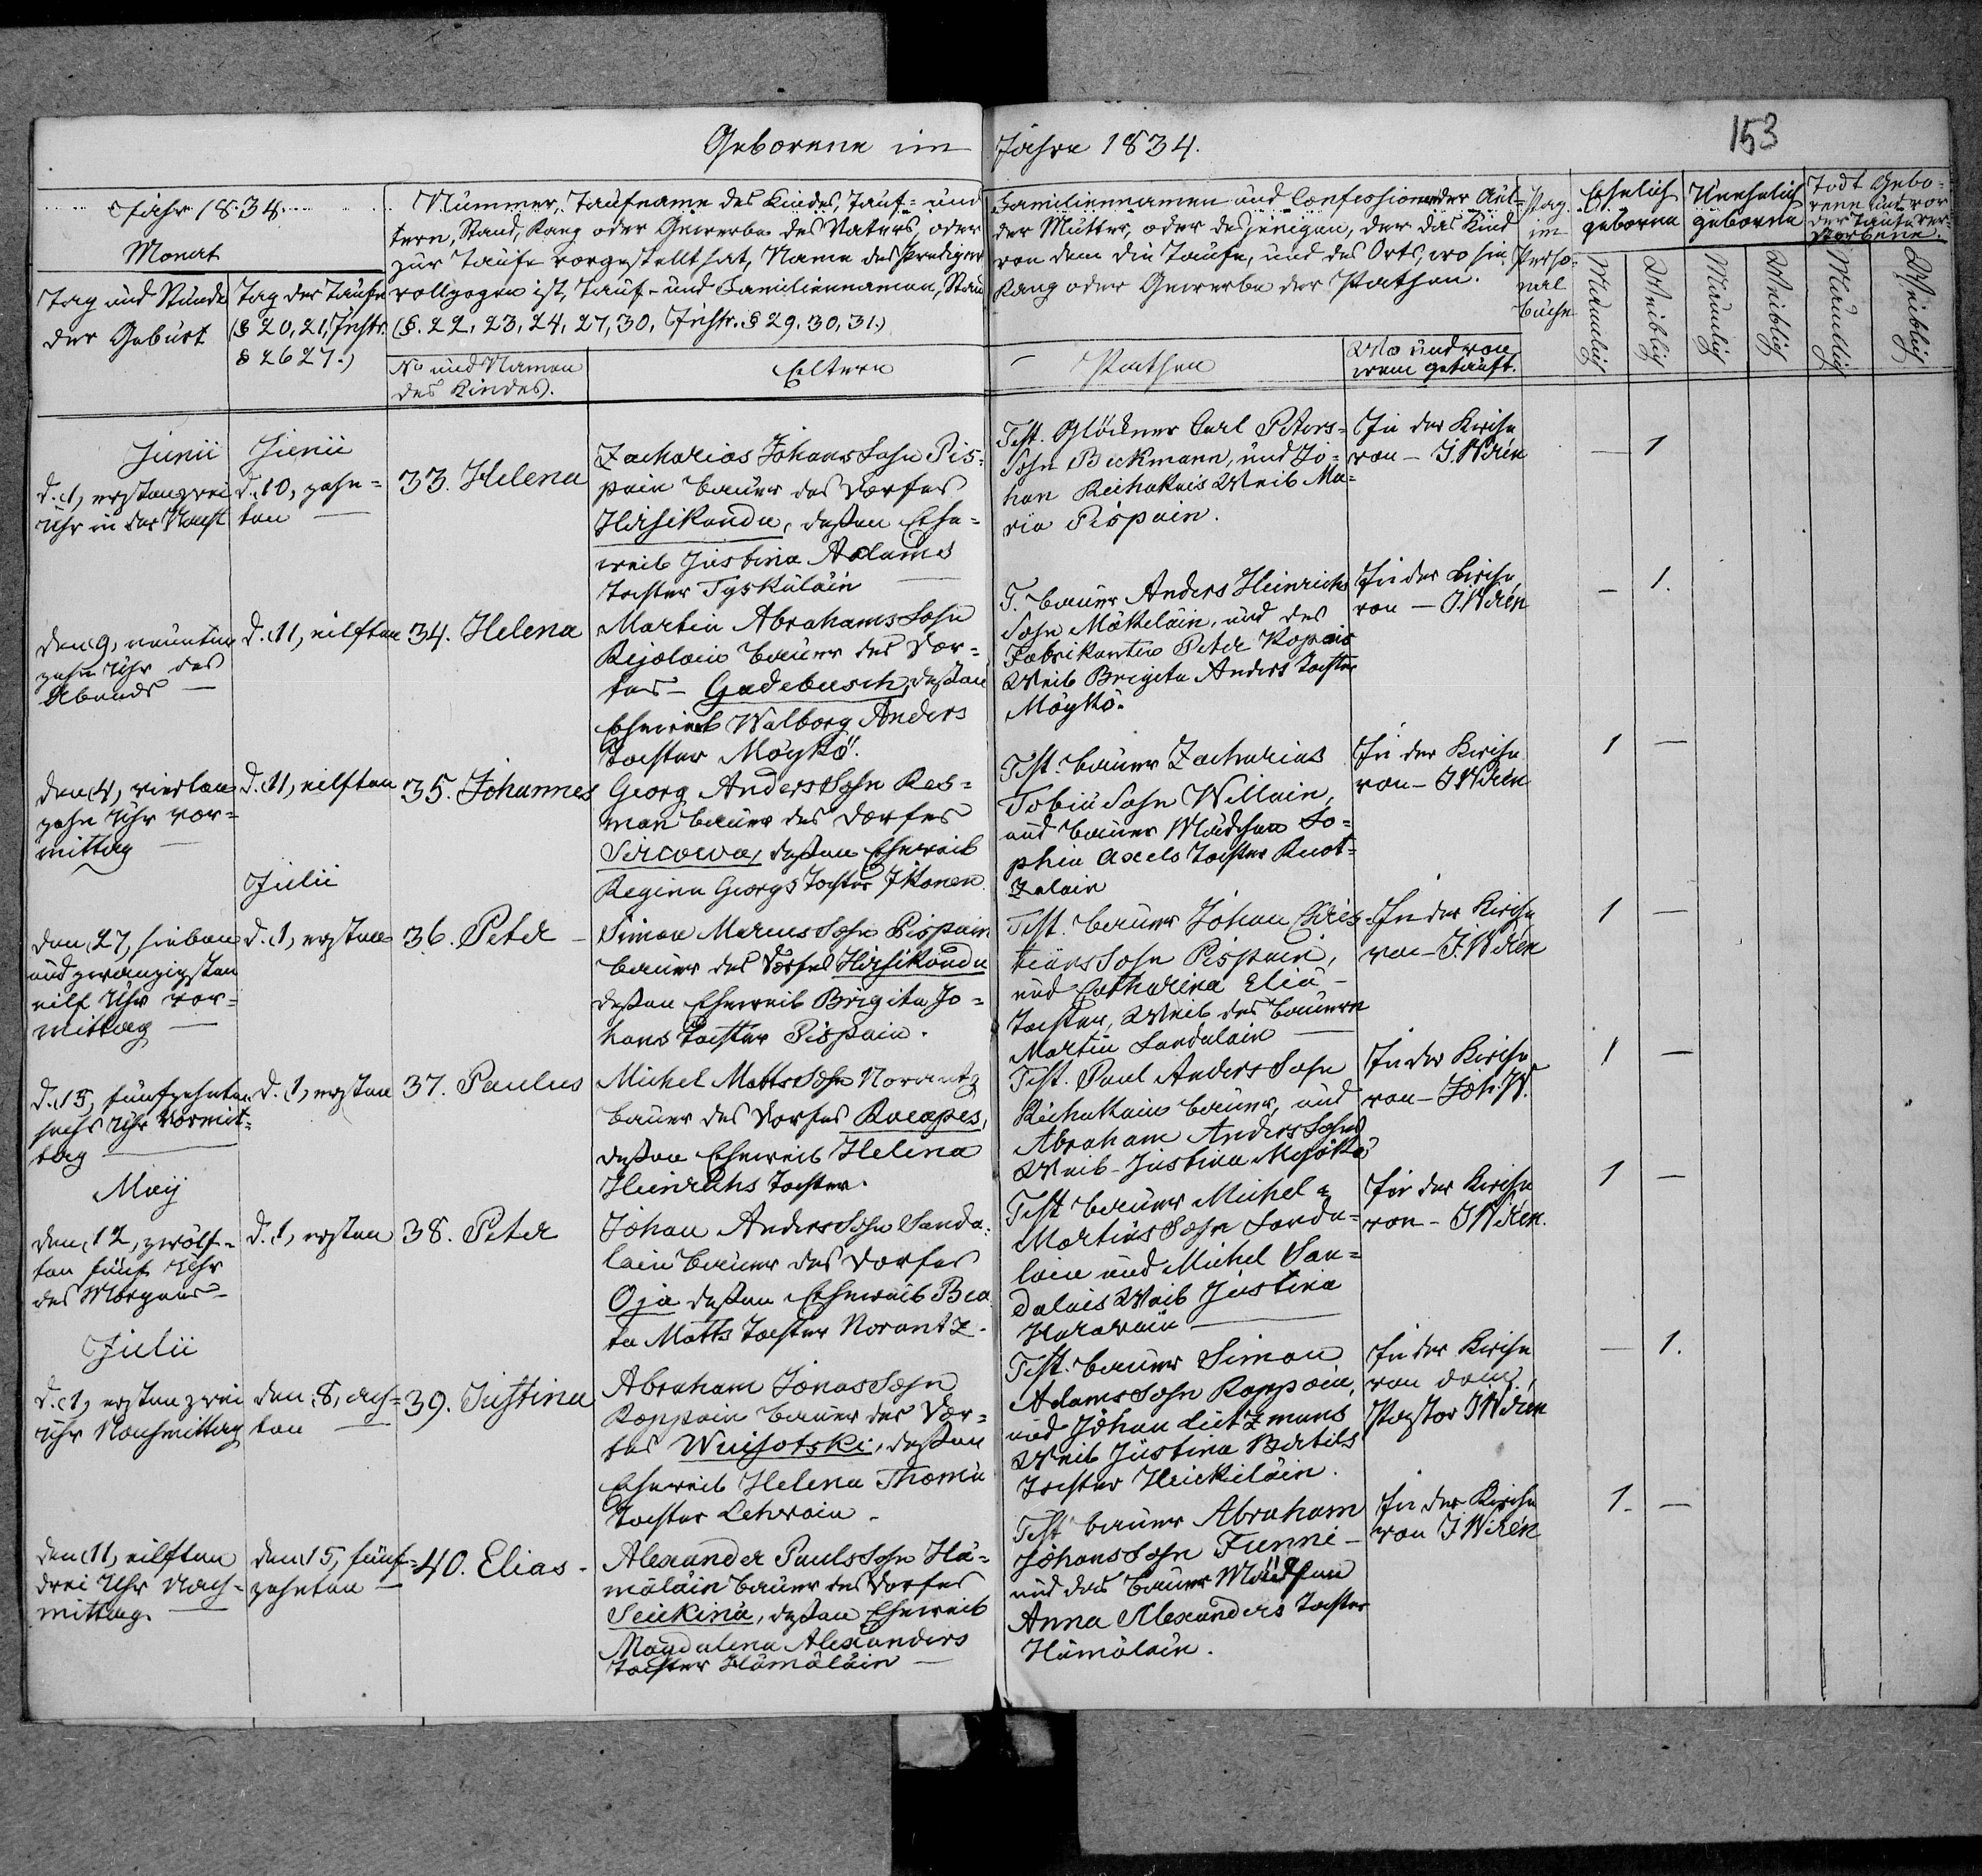 Geborene im Jahre 1834.
153
Jahr 1834
Monat
Tag und Stunde
der Geburt
Tag der Taufe
(§ 20, 21, Instr.
§ 26 27.)
Nummer, Taufname des Kindes, Tauf- und Familiennamen und Confession der Äl-
tern, Stand, Rang oder Gewerbe des Vaters, oder der Mutter, oder desjenigen, der das Kind
zur Taufe vorgestellt hat, Name des Predigers von dem die Taufe, und des Orts, wo sie
vollzogen ist, Tauf- und Familiennamen, Stand Rang oder Gewerbe der Pathen.
(§. 22, 23, 24, 27, 30, Instr. § 29. 30, 31.)
No und Namen
des Kindes).
Eltern
Pathen
Wo und von
wem getauft.
Pag.
im
Perso-
nal
buche
Ehelich
geborene
Unehelich
geborene
Todt Gebo-
rene und vor
der Taufe ver-
storbene.
Männlich
Weiblich
Männlich
Weiblich
Männlich
Weiblich
Junii
d. 1, ersten zwei
Uhr in der Nacht
Junii
d. 10, zehn-
ten —
33. Helena
Zacharias Johans Sohn Pis-
pain bauer des Dorfes
Hirsikondu, deßen Ehe-
weib Justina Adams
Tochter Tyskiläin
Test. Glöckner Carl Peters-
Sohn Beckmann, und Jo-
han Weib Ma-
ria Pispain.
In der Kirche
von — J. Wirén
— 1
den 9, neunten
zehn Uhr des
Abends —
d. 11, eilften
34. Helena
Martin Abrahams Sohn
bauer des Dor-
fes — Gadebusch, deßen
Eheweib Walborg Anders
Tochter Möykö.
T. bauer Anders Heinrichs
Sohn Mökeläin, und des
Fabrikanten Peter
Weib Brigita Anders Tochter
Möykö.
In der Kirche
von — J. Wirén
— 1.
den 4, vierten
zehn Uhr vor-
mittag —
d. 11, eilften
35. Johannes
Georg Anders Sohn Res-
man bauer des Dorfes
deßen Eheweib
Regina Georgs Tochter Ikonen.
Test. bauer Zacharias
Tobiä Sohn Willain,
und bauer Mädchen So-
phia Axels Tochter
In der Kirche
von — J Wirén
1 —
Julii
den 27, sieben
und zwanzigsten
eilf Uhr vor-
mittag —
d. 1, ersten
36. Peter —
Simon Marcus Sohn Pispain
bauer des Dorfes Hirsikondu
deßen Eheweib Brigita Jo-
hans Tochter Pispain.
Test. bauer Johan Chris-
tians Sohn Pispain,
und Catharina Eliä-
Tochter, Weib des bauern
Martin Sandalain
In der Kirche
von — J. Wirén
1 —
d. 15, fünfzehnten
sechs Uhr Vormit-
tag —
d. 1, ersten
37. Paulus
Michel Matts Sohn Norantz
bauer des Dorfes
deßen Eheweib Helena
Heinrichs Tochter.
Test. Paul Anders Sohn
bauer, und
Abraham Anders Sohns
Weib Justina
In der Kirche
von — Joh. W.
1 —
Maij
den 12, zwölf-
ten fünf Uhr
des Morgens —
d. 1, ersten
38. Peter
Johan Anders Sohn Sanda-
lain bauer des Dorfes
Oja deßen Eheweib Bea
ta Matts Tochter Norantz —
Test bauer Michel
Martins Sohn Sanda-
lain und Michel San-
dalais Weib Justina
In der Kirche
von — J Wirén.
1 —
Julii
d. 1, ersten zwei
Uhr Nachmittag
den 8, ach-
ten —
39. Justina
Abraham Jonas Sohn
Roppain bauer des Dor-
fes Wuisotski, deßen
Eheweib Helena Thomä
Tochter Lehwain —
Test. bauer Simon
Adams Sohn Roppain,
und Johan Lietzmans
Weib Justina Bertils
Tochter Heickiläin.
In der Kirche
von dem
Pastor J Wirén
— 1.
den 11, eilften
drei Uhr Nach-
mittag. —
den 15, fünf-
zehnten —
40. Elias —
Alexander Pauls Sohn Hä-
mäläin bauer des Dorfes
Seukina, deßen Eheweib
Magdalena Alexanders
Tochter Hämäläin —
Test bauer Abraham
Johans Sohn Funni —
und das bauer Mädchen
Anna Alexanders Tochter
Hämäläin.
In der Kirche
von J Wirén
1. —